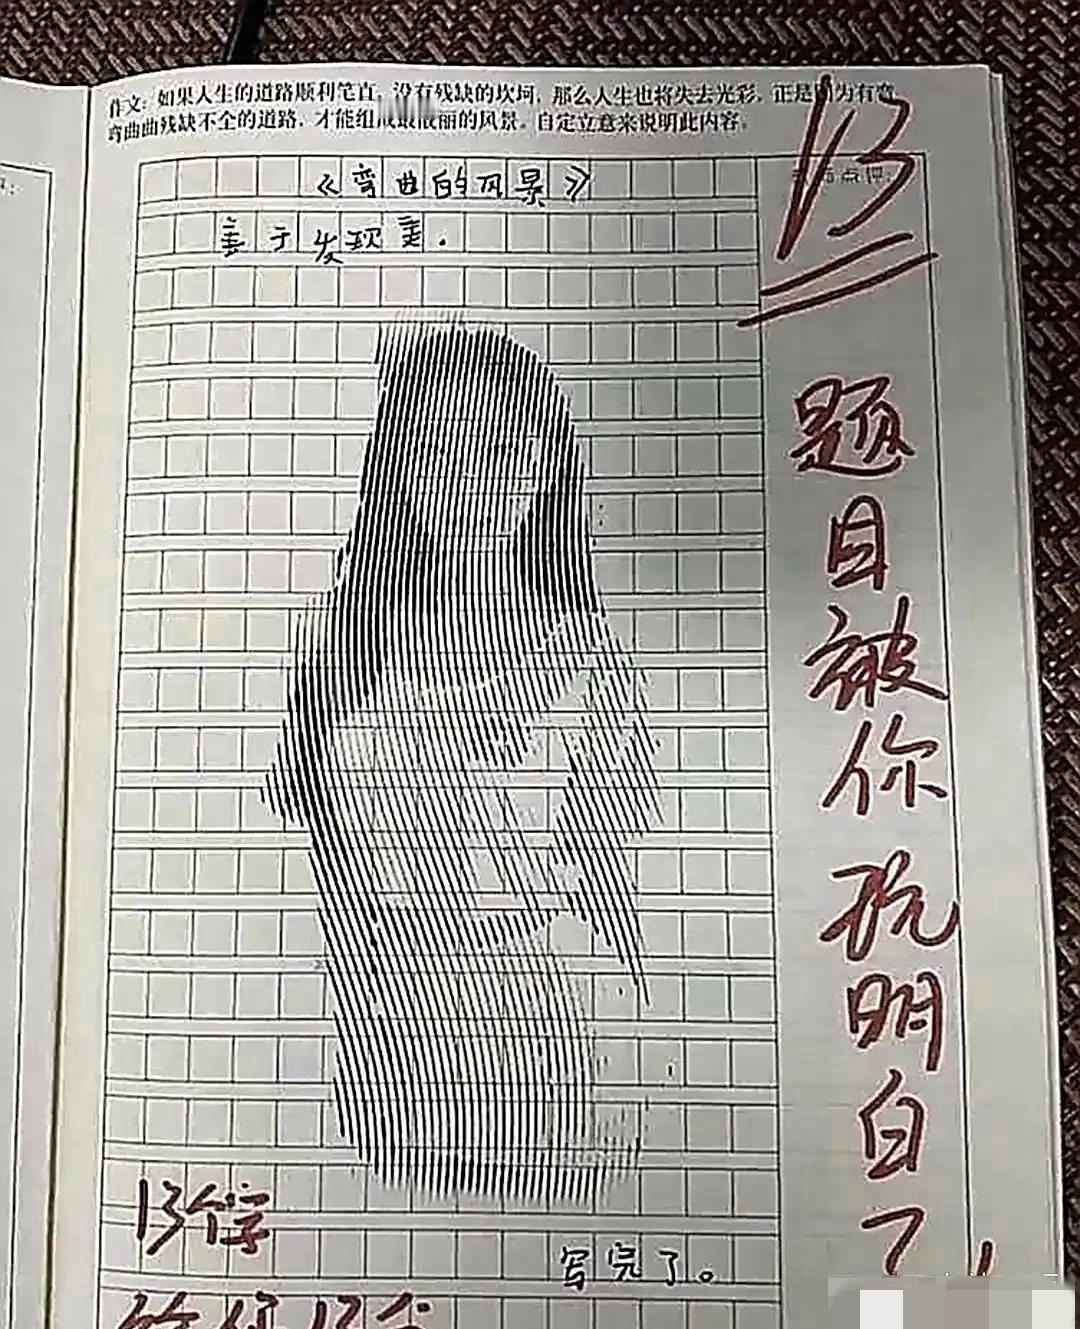 作文：如果人生的道路顺利笔直，没有残缺的坎坷，那么人生也将失去光彩，正是因为有弯
弯曲曲残缺不全的道路，才能组成最靓丽的风景。自定立意来说明此内容。
《弯曲的风景》
善于发现美.
写完了。
点评：
13
题目被你玩明白了！
13个字
给你13分